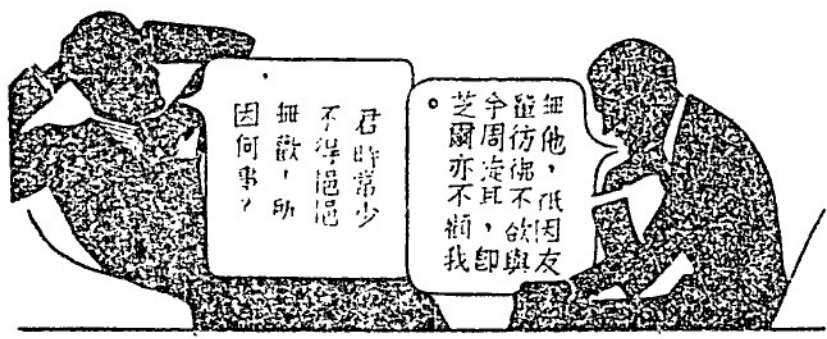 君時常少
不悒悒
無歡，所
因何事？
無他，祇因友
輩彷彿不欲與
予周旋耳，即
芝爾亦不顧我
。